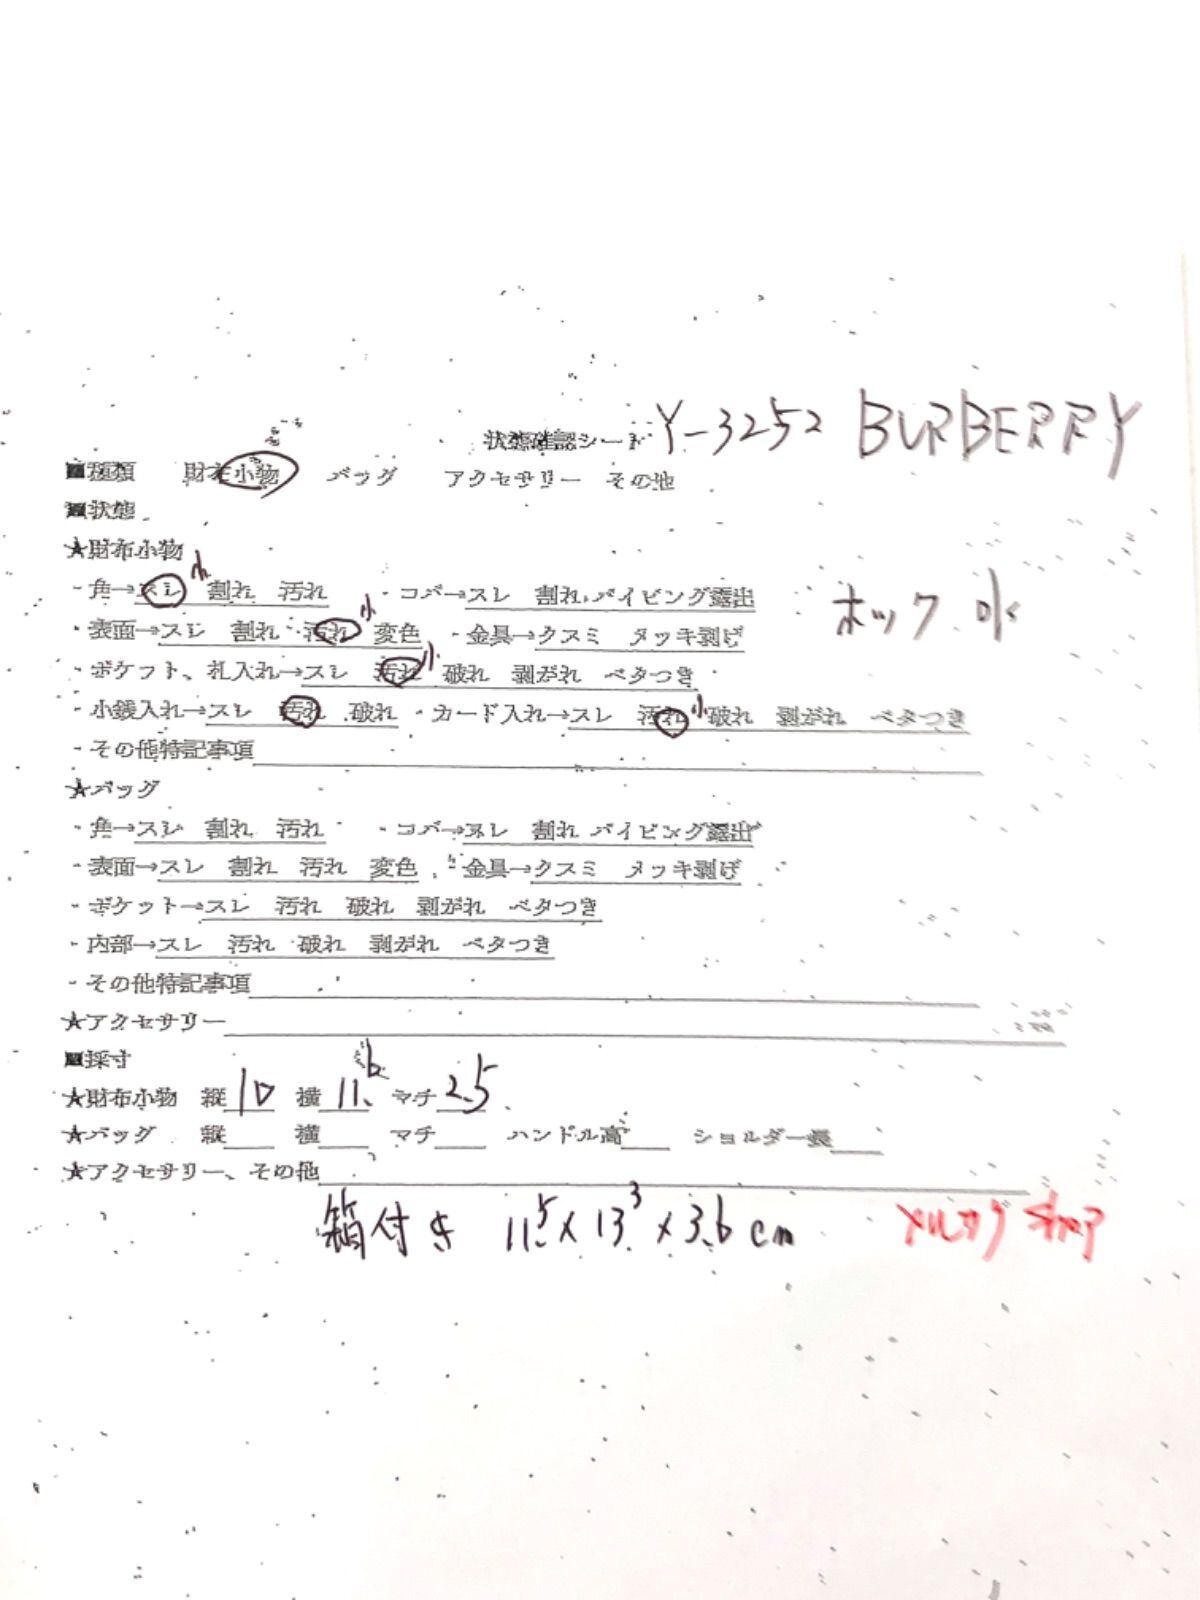 状態確認シート Y-3252 BURBERRY
■種類 財布小物 バッグ アクセサリー その他
■状態
★財布小物
・角→スレ 小 割れ 汚れ ・コバ→スレ 割れ パイピング露出
ホック
・表面→スレ 割れ 汚れ 小 変色 ・金具→クスミ メッキ剥げ
・ポケット、札入れ→スレ 汚れ 小 破れ 剥がれ ベタつき
・小銭入れ→スレ 汚れ 破れ ・カード入れ→スレ 汚れ 小 破れ 剥がれ ベタつき
・その他特記事項
★バッグ
・角→スレ 割れ 汚れ ・コバ→スレ 割れ パイピング露出
・表面→スレ 割れ 汚れ 変色 ・金具→クスミ メッキ剥げ
・ポケット→スレ 汚れ 破れ 剥がれ ベタつき
・内部→スレ 汚れ 破れ 剥がれ ベタつき
・その他特記事項
★アクセサリー
■採寸
★財布小物 縦 10 横 11.6 マチ 2.5
★バッグ 縦 横 マチ ハンドル高 ショルダー長
★アクセサリー、その他
箱付き 11.5×13.3×3.6cm